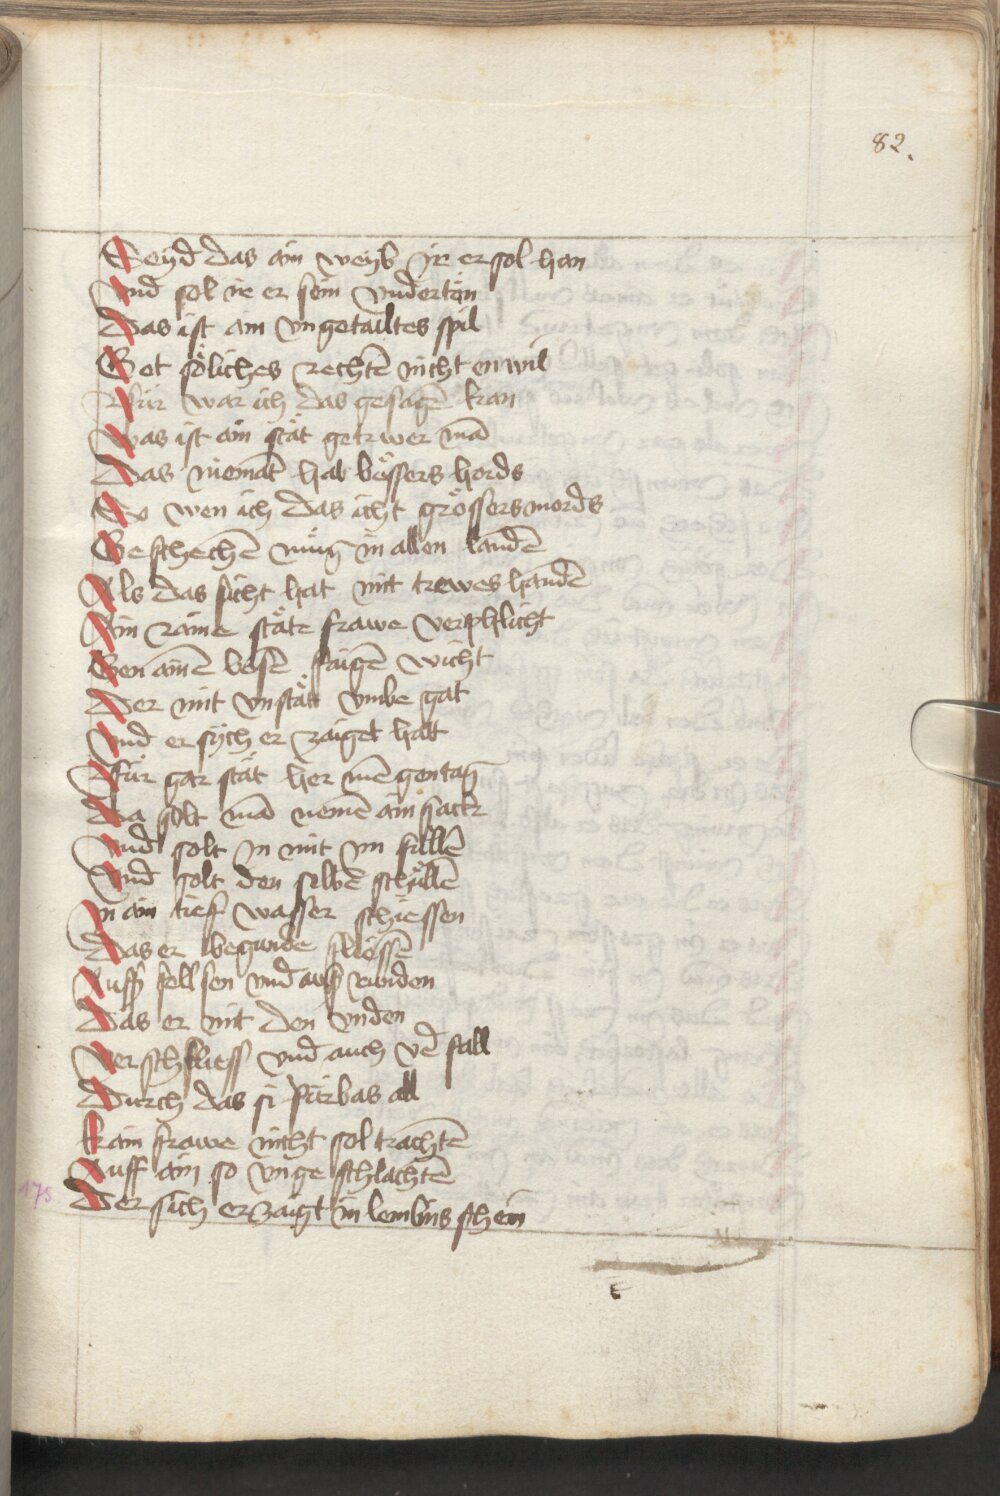 82.
Seyd das ain weyb ir er sol han
Vnd sol ir er sein vndertön
Das ist ain vngetailtes spil
Got söliches rechtē nicht enwil
Für war ich das gesagē kan
Was ist ain stät getrwer mā
Das niemāt hab bössers hords
So wen ich das icht grössers mords
Geschechē müg in allen landē
Als das sicht hat mit trewes handē
Ain raine stäte frawe verphlicht
Gen ainē bösē faigē wicht
Der mit vnstätt vmbe gat
Vnd er sych er zaiget hatt
Für gar stät her
Da solt mā nemē ain sack
Vnd solt in mit im füllē
Vnd solt den selbē schüllē
In ain tief wasser schiessen
Das er begunde fliessē
Auff fellsen vnd auff
Das er mit den vnden
Verschlieff vnd auch vē fall
Durch das si fürbas all
Kain frawe nicht sol trachtē
Auff ain so vnge schlachtē
175
Der sich erzaigt in lemblins schein